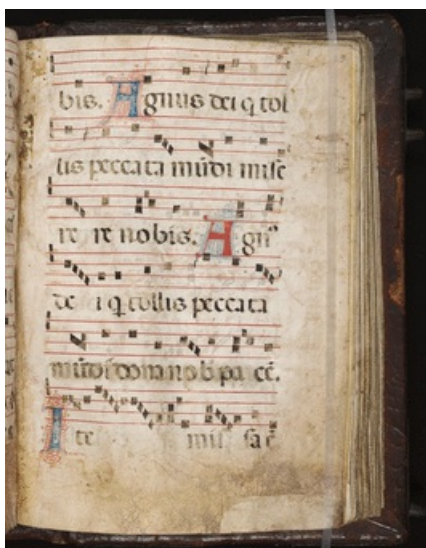 bis. Agnus dei q tol
lis peccata mūdi mise
re re nobis. Agn⁹
de i q tollis peccata
mūdi dona nob pa cē.
Ite missa ē